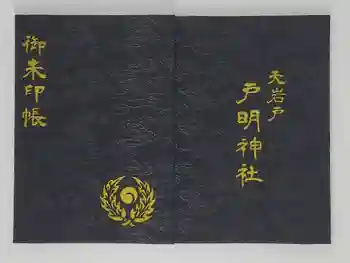 天岩戸
戸明神社
御朱印帳